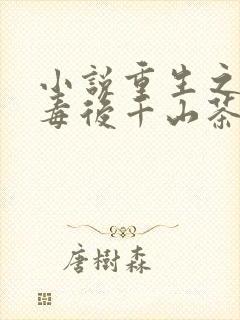 小說重生之
毒後千山茶
唐樹森